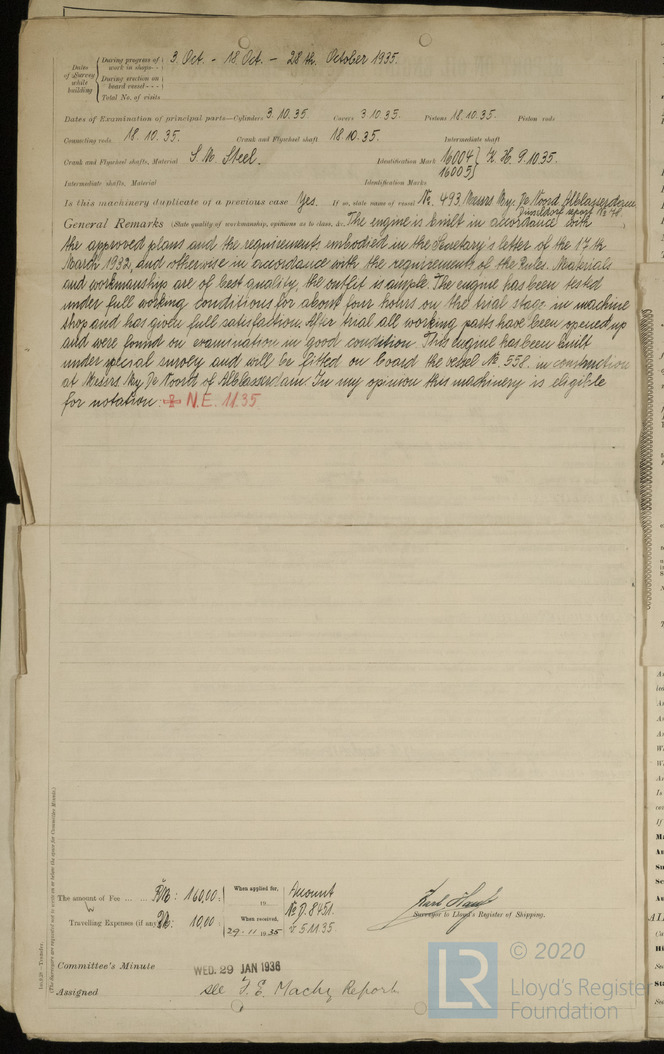 Dates of Survey while building
During progress of work in shops - - 3. Oct. - 18. Oct. - 28th. October 1935.
During erection on board vessel - - -
Total No. of visits
Dates of Examination of principal parts—Cylinders 3.10.35. Covers 3.10.35. Pistons 18.10.35. Piston rods
Connecting rods 18.10.35. Crank and Flywheel shaft 18.10.35. Intermediate shaft
Crank and Flywheel shafts, Material S. M. Steel. Identification Mark 16004 } K. H. 9.10.35.
16005 }
Intermediate shafts, Material Identification Marks
Is this machinery duplicate of a previous case Yes. If so, state name of vessel No. 493 Messrs My. De Noord Alblasserdam
Düsseldorf report No 48.
General Remarks (State quality of workmanship, opinions as to class, &c. The engine is built in accordance with
the approved plans and the requirements embodied in the Secretary's letter of the 17th
March 1932, and otherwise in accordance with the requirements of the Rules. Materials
and workmanship are of best quality, the outfit is ample. The engine has been tested
under full working conditions for about four hours on the trial stage in machine
shop and has given full satisfaction. After trial all working parts have been opened up
and were found on examination in good condition. This engine has been built
under special survey and will be fitted on board the vessel No. 558. in construction
at Messrs My. De Noord of Alblasserdam. In my opinion this machinery is eligible
for notation: ✠ N.E. 11.35
The amount of Fee ... ... RM: 160,00: When applied for, Amount
19 No D. 8451.
Travelling Expenses (if any) : 10,00: When received, v 5.11.35.
29-11-1935
Surveyor to Lloyd's Register of Shipping.
Committee's Minute WED. 29 JAN 1936
Assigned see F. E. Machy Report.
(The Surveyors are requested not to write on or below the space for Committee's Minute.)
© 2020
LR Lloyd's Register
Foundation